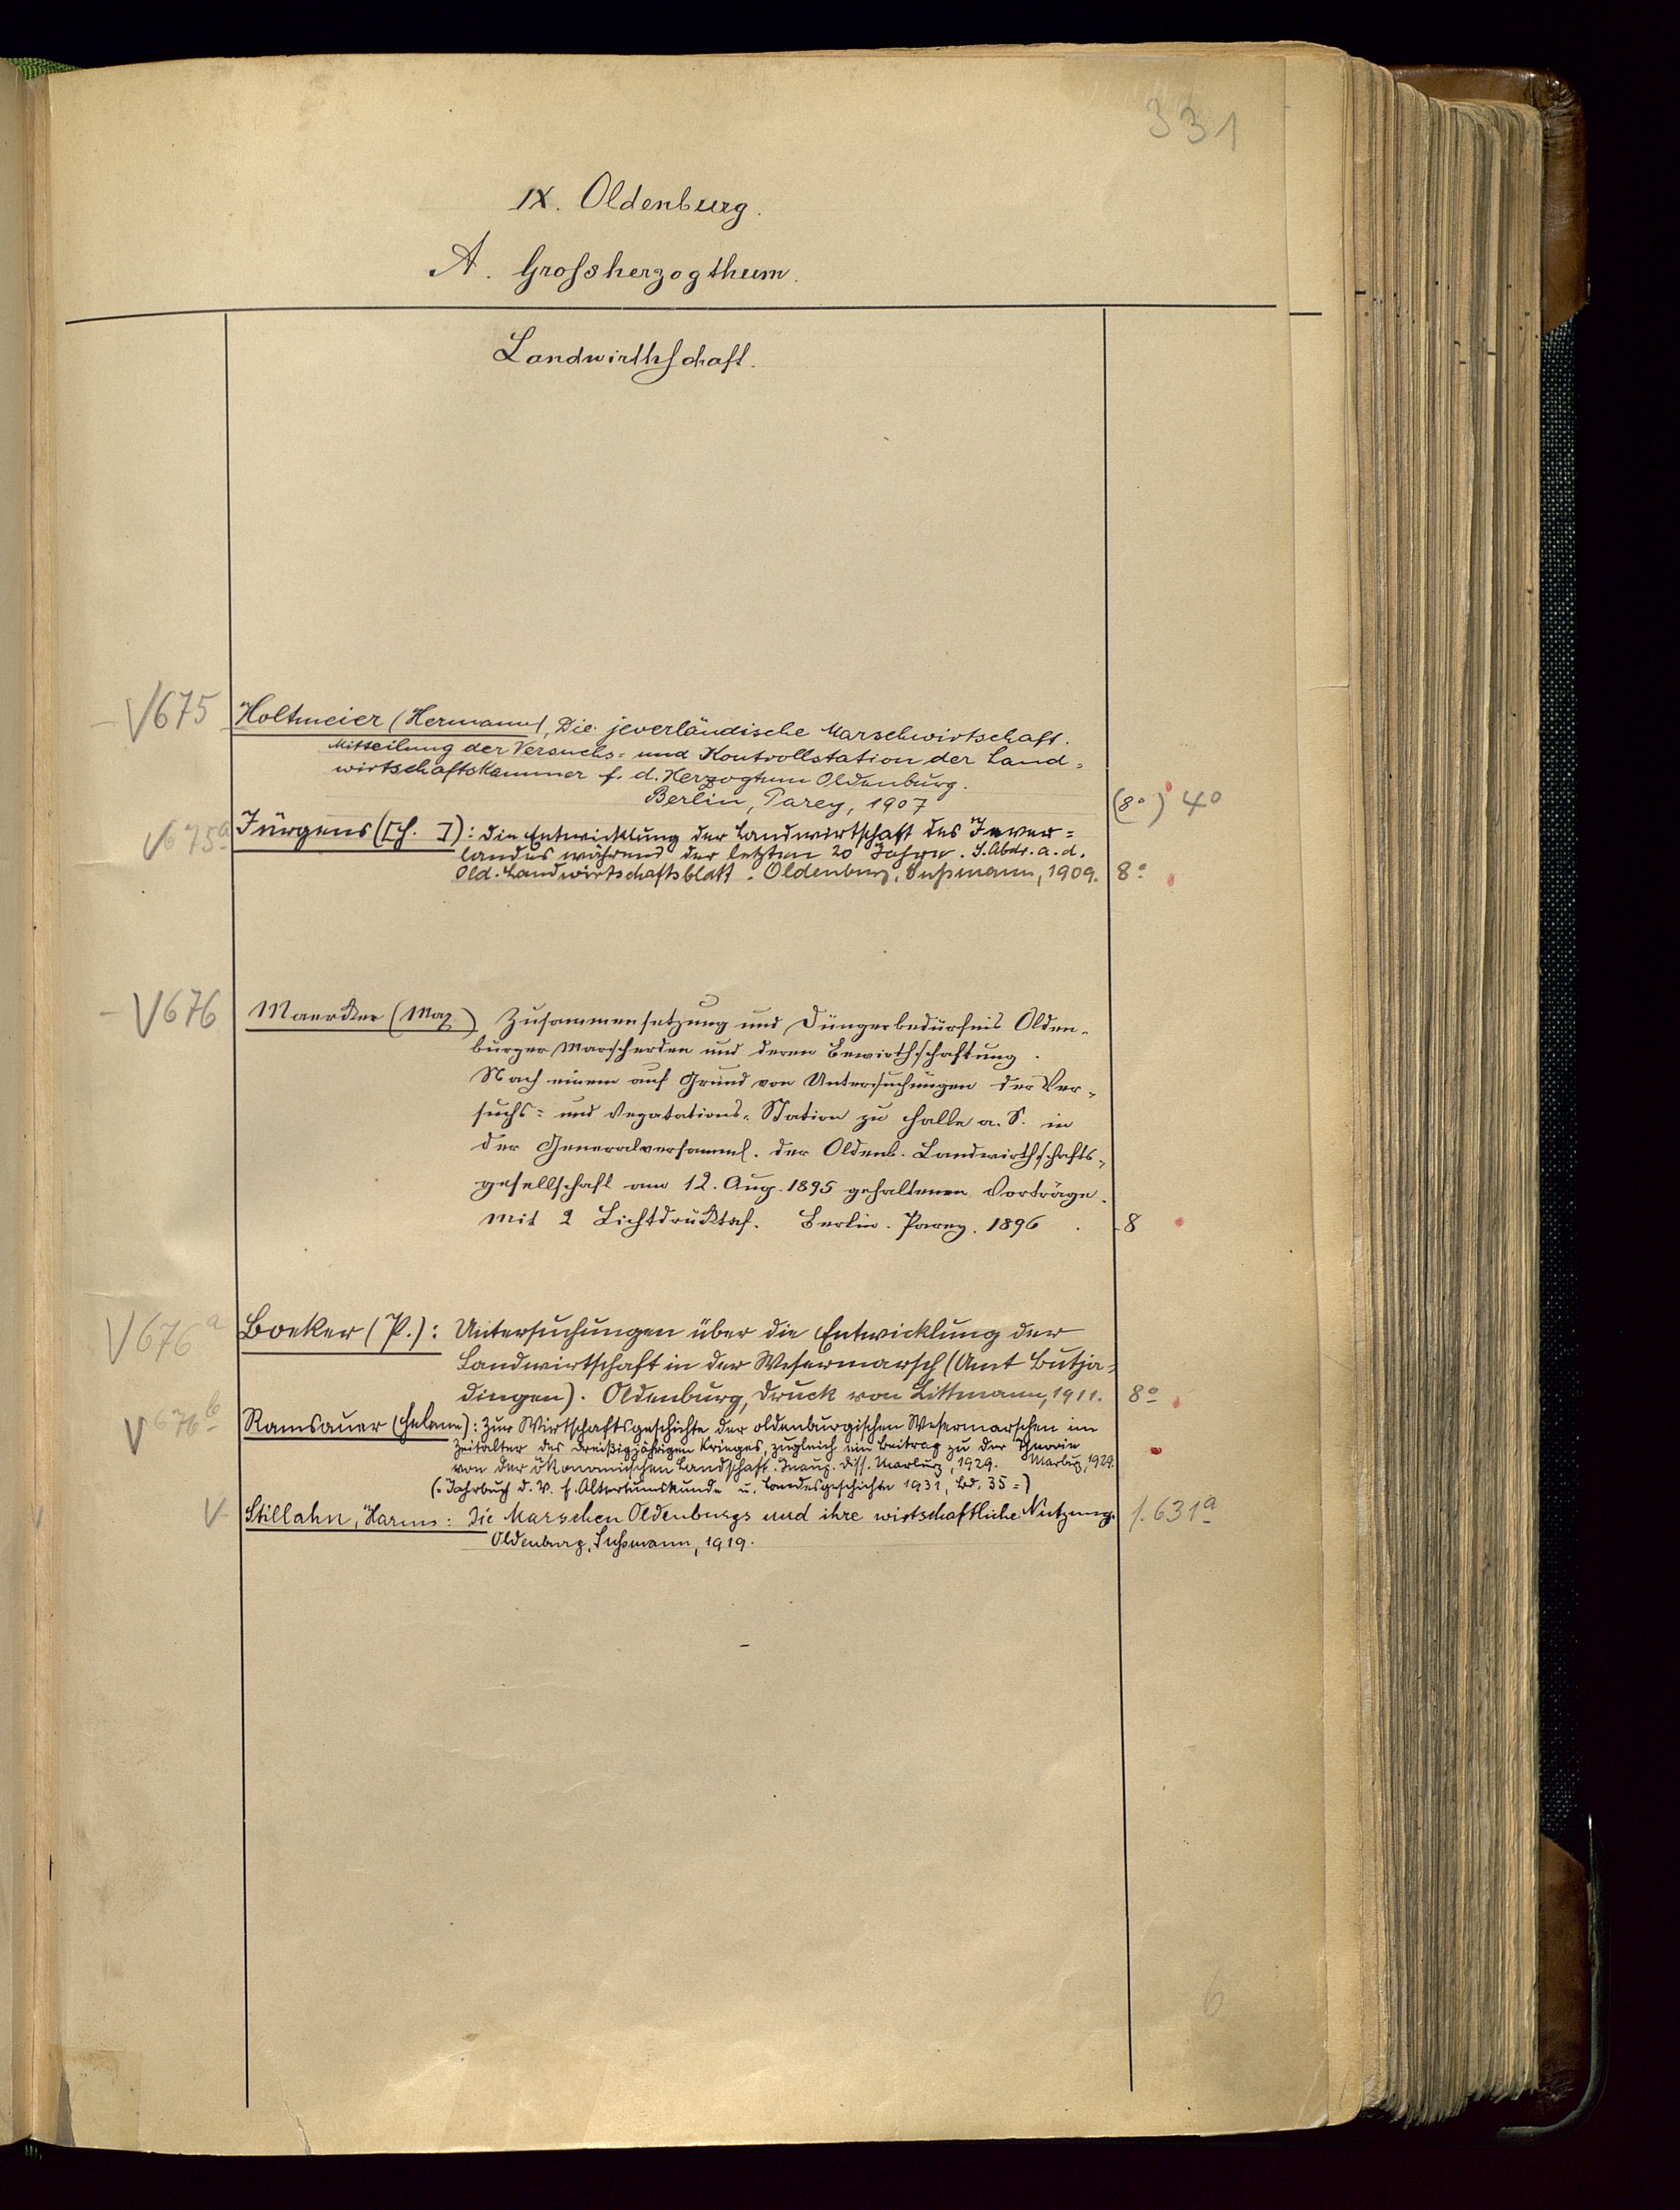 331
IX. Oldenburg.
A. Grossherzogthum.
Landwirthschaft.
V675 Holtmeier (Hermann), Die jeverländische Marschwirtschaft.
Mitteilung der Versuchs- und Kontrollstation der Land-
wirtschaftskammer f. d. Herzogtum Oldenburg.
Berlin, Parey, 1907 (8°) 4°
V675a Jürgens ([H. ]): Die Entwicklung der Landwirtschaft des Jever=
landes während der letzten 20 Jahre. S. Abdr. a. d.
Old. Landwirtschaftsblatt. Oldenburg, Sußmann, 1909. 8°
V676 Maercker (Max) Zusammensetzung und Düngerbedürfnis Olden-
burger Marscherden und deren Bewirthschaftung.
Nach einem auf Grund von Untersuchungen der Ver-
suchs- und Vegetations-Station zu Halle a. S. in
der Generalversamml. der Oldenb. Landwirthschafts-
gesellschaft am 12. Aug. 1895 gehaltenen Vorträge.
Mit 2 Lichtdrucktaf. Berlin. Parey. 1896. 8
V676a Boeker (P.): Untersuchungen über die Entwicklung der
Landwirtschaft in der Wesermarsch (Amt Butja-
dingen). Oldenburg, Druck von Littmann, 1911. 8°
V676b Ramsauer (Helene): Zur Wirtschaftsgeschichte der oldenburgischen Wesermarschen im
Zeitalter des dreißigjährigen Krieges, zugleich ein Beitrag zu der Theorie
von der ökonomischen Landschaft. Inaug. Diss. Marburg, 1929. Marburg, 1929.
(= Jahrbuch d. V. f. Altertumskunde u. Landesgeschichte 1931, Bd. 35 =)
V Stillahn, Harms: Die Marschen Oldenburgs und ihre wirtschaftliche Nutzung. f. 631a
Oldenburg, Sußmann, 1919.
6